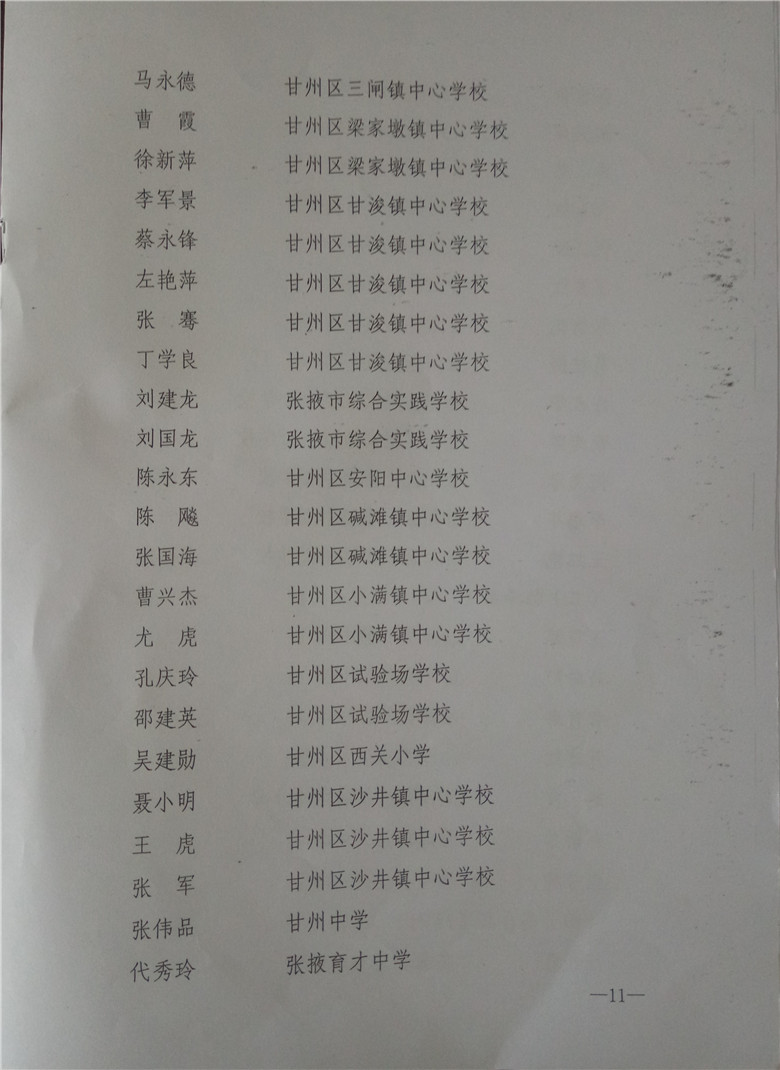 马永德 甘州区三闸镇中心学校
曹 霞 甘州区梁家墩镇中心学校
徐新萍 甘州区梁家墩镇中心学校
李军景 甘州区甘浚镇中心学校
蔡永锋 甘州区甘浚镇中心学校
左艳萍 甘州区甘浚镇中心学校
张 骞 甘州区甘浚镇中心学校
丁学良 甘州区甘浚镇中心学校
刘建龙 张掖市综合实践学校
刘国龙 张掖市综合实践学校
陈永东 甘州区安阳中心学校
陈 飚 甘州区碱滩镇中心学校
张国海 甘州区碱滩镇中心学校
曹兴杰 甘州区小满镇中心学校
尤 虎 甘州区小满镇中心学校
孔庆玲 甘州区试验场学校
邵建英 甘州区试验场学校
吴建勋 甘州区西关小学
聂小明 甘州区沙井镇中心学校
王 虎 甘州区沙井镇中心学校
张 军 甘州区沙井镇中心学校
张伟品 甘州中学
代秀玲 张掖育才中学
—11—